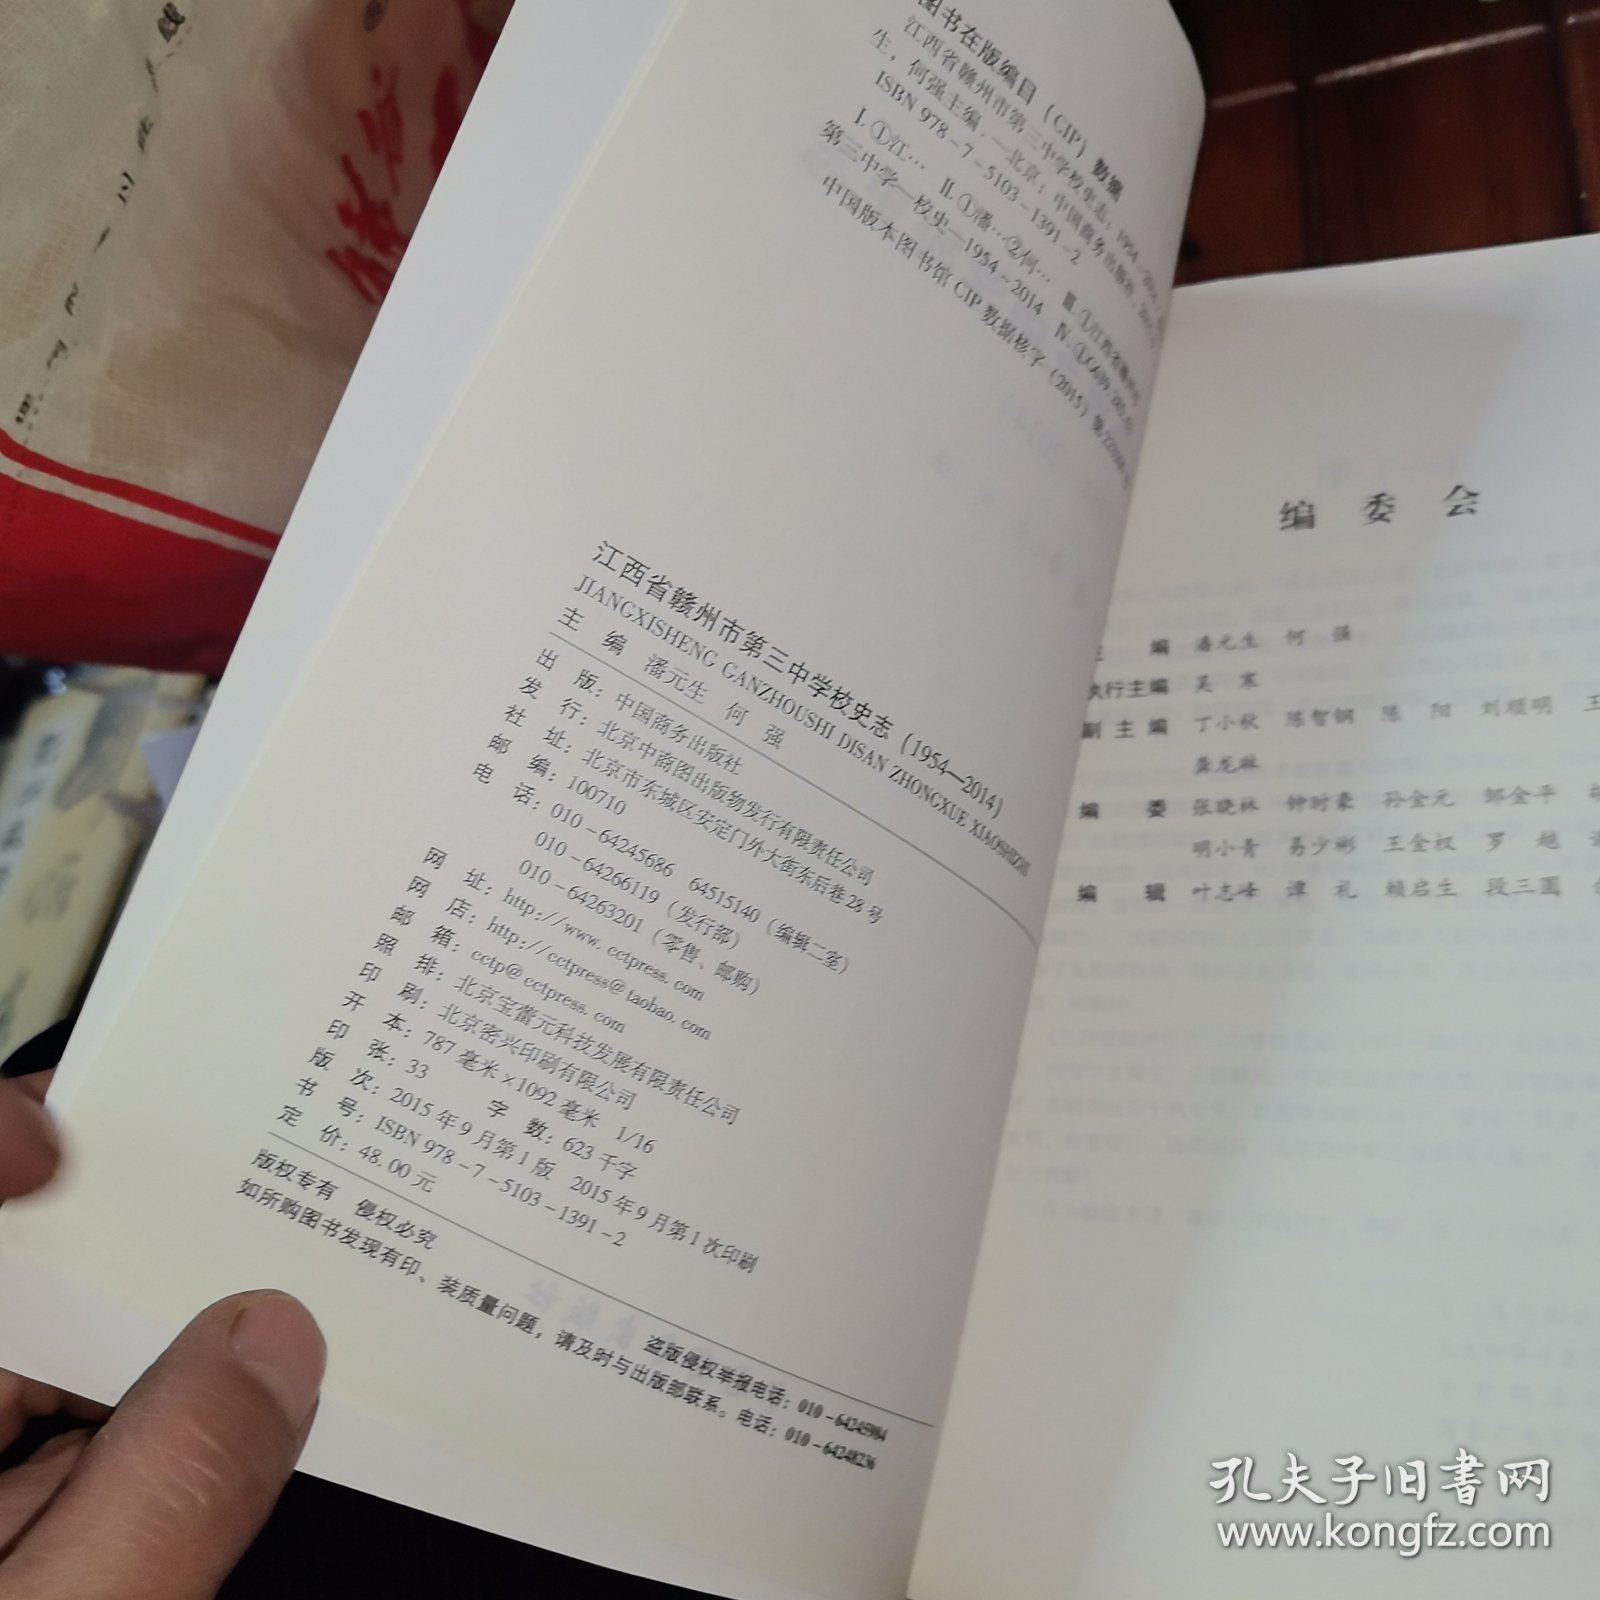 图书在版编目（CIP）数据
江西省赣州市第三中学校史志：1954
生，何强主编.—北京：中国商务出版社
ISBN 978-7-5103-1391-2
Ⅰ.①江… Ⅱ.①潘…②何… Ⅲ.①江西省
第三中学—校史—1954~2014 Ⅳ.①G639.285.
中国版本图书馆CIP数据核字（2015）第
江西省赣州市第三中学校史志（1954—2014）
JIANGXISHENG GANZHOUSHI DISAN ZHONGXUE XIAOSHIZHI
主 编 潘元生 何 强
出 版：中国商务出版社
发 行：北京中商图出版物发行有限责任公司
社 址：北京市东城区安定门外大街东后巷28号
邮 编：100710
电 话：010-64245686 64515140（编辑二室）
010-64266119（发行部）
010-64263201（零售、邮购）
网 址：http://www.cctpress.com
网 店：http://cctpress@taobao.com
邮 箱：cctp@cctpress.com
照 排：北京宝蕾元科技发展有限责任公司
印 刷：北京密兴印刷有限公司
开 本：787毫米×1092毫米 1/16
印 张：33 字 数：623千字
版 次：2015年9月第1版 2015年9月第1次印刷
书 号：ISBN 978-7-5103-1391-2
定 价：48.00元
版权专有 侵权必究 盗版侵权举报电话：010-64245984
如所购图书发现有印、装质量问题，请及时与出版部联系。电话：010-64248236
编 委 会
主 编 潘元生 何 强
执行主编 吴 寒
副主编 丁小秋 陈智钢 陈 阳 刘顺明 王
龚龙琳
编 委 张晓林 钟时豪 孙金元 邹金平
明小青 易少彬 王金权 罗 越
编 辑 叶志峰 谭 礼 赖启生 段三圆
孔夫子旧书网
www.kongfz.com